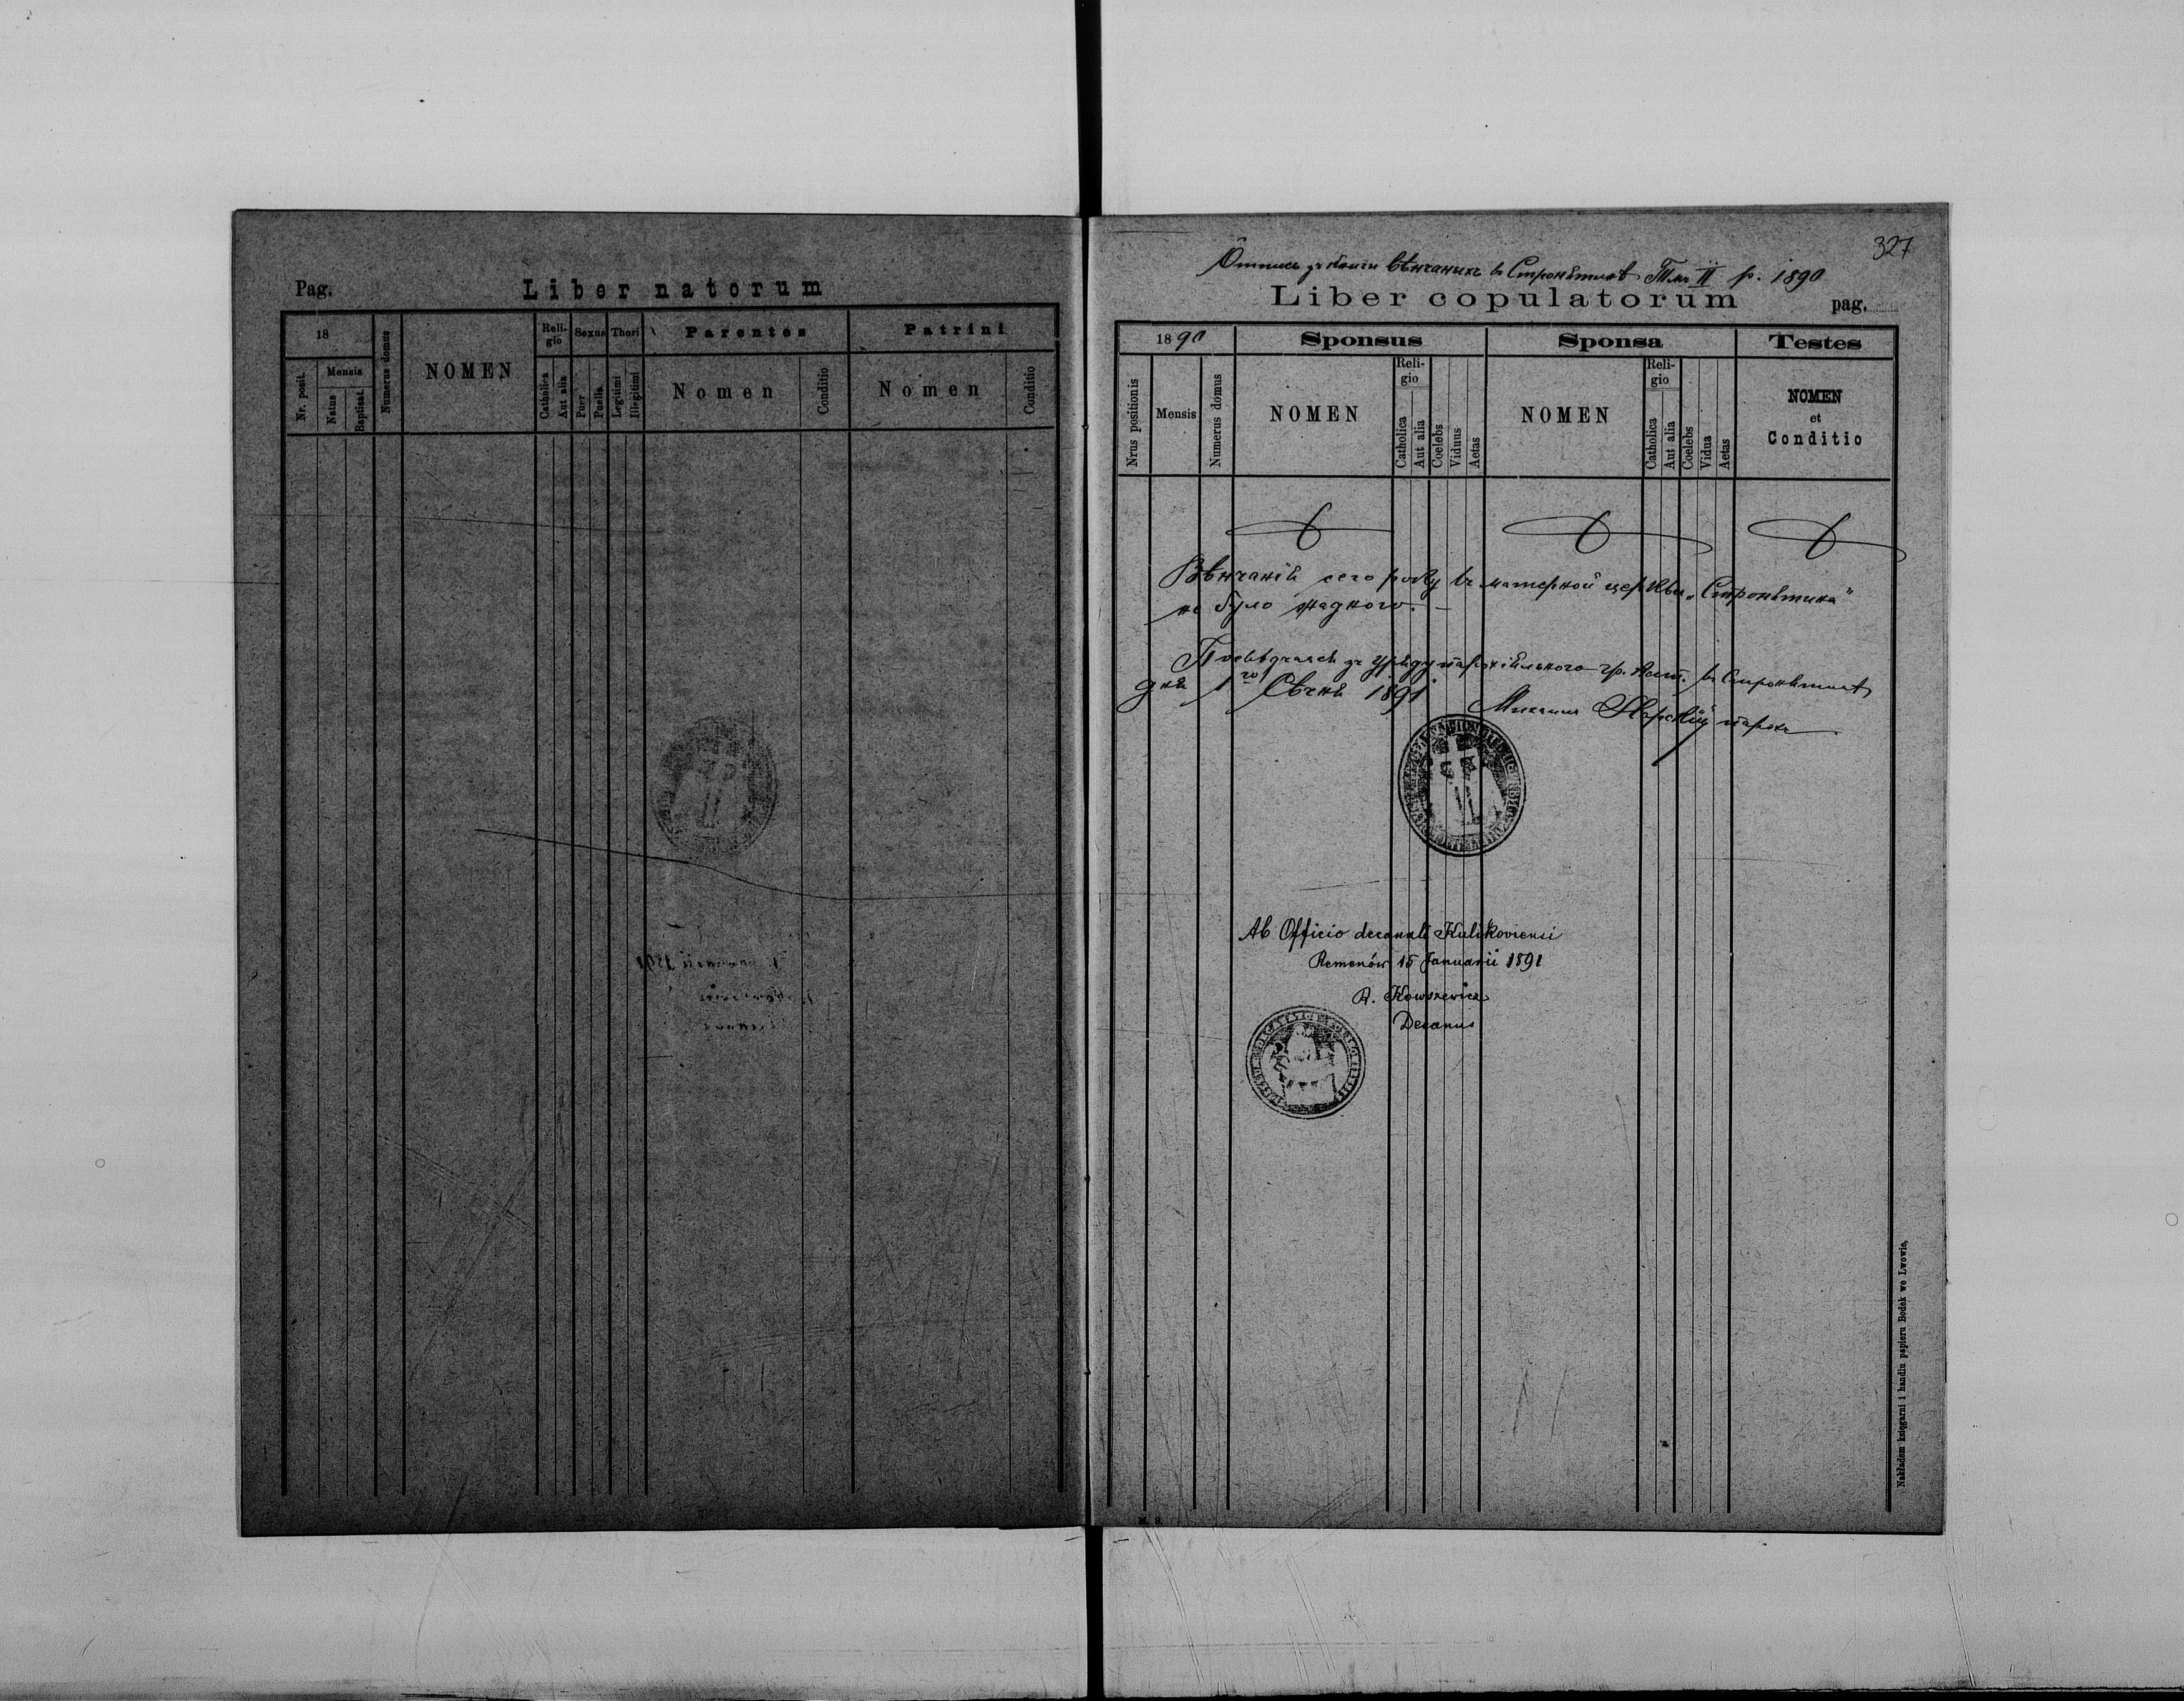 Pag.
Liber natorum
18
Nr. posit.
Mensis
Natus
Baptisat.
Numerus domus
NOMEN
Reli-
gio
Catholica
Aut alia
Sexus
Puer
Puella
Thori
Legitimi
Illegitimi
Parentes
Nomen
Conditio
Patrini
Nomen
Conditio
327
Отпись зъ книги вѣнчаныхъ въ Стронѣтинѣ Томъ II р. 1890
Liber copulatorum
pag.
1890
Nrus positionis
Mensis
Numerus domus
Sponsus
NOMEN
Reli-
gio
Catholica
Aut alia
Coelebs
Viduus
Aetas
Sponsa
NOMEN
Reli-
gio
Catholica
Aut alia
Coelebs
Vidua
Aetas
Testes
NOMEN
et
Conditio
Вѣнчаній сего року въ матерной церкви „Стронѣтина"
не було жадного. —
зъ уряду парохіяльного гр. въ Стронѣтинѣ
дня 1го Сѣчня 1891
Михаилъ парохъ
Ab Officio decanali Kulikoviensi
Remenów 15 Januarii 1891
Kowszewicz
Decanus
Nakładem księgarni i handlu papieru Bodek we Lwowie,
M. 9.